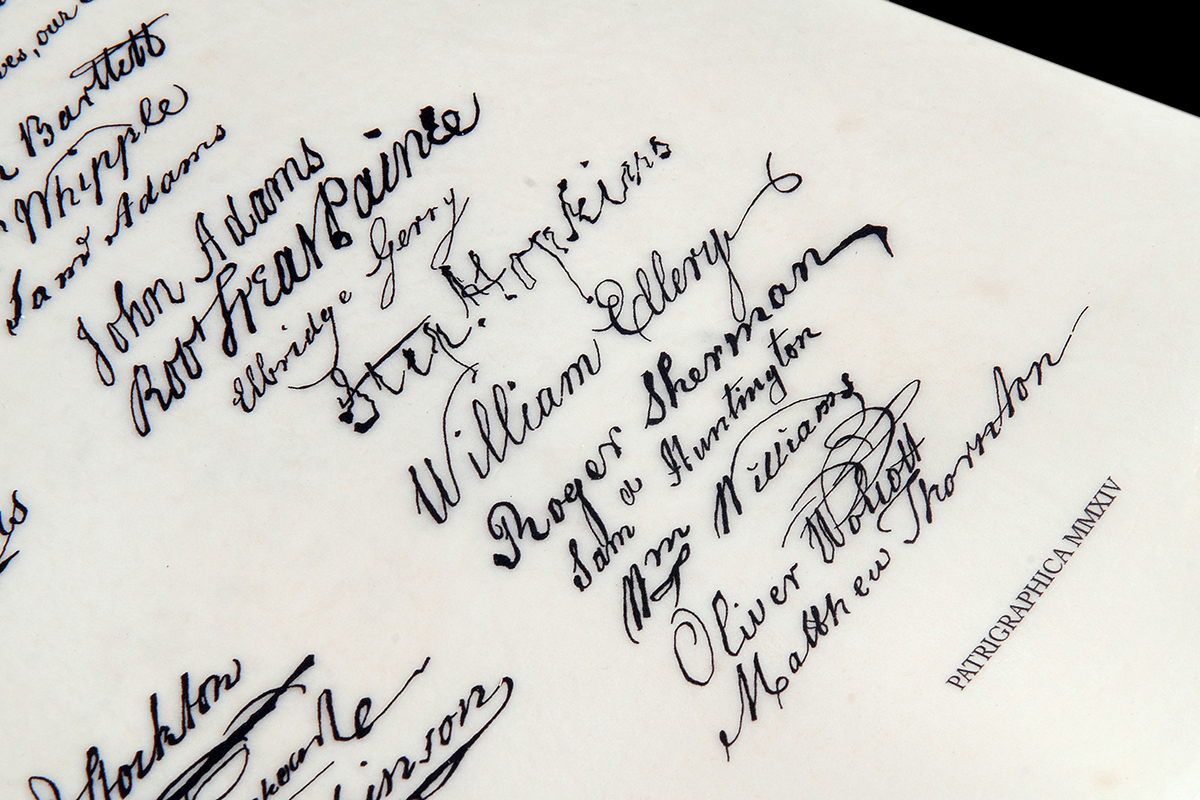 ves, our
Bartlett
Whipple
Sam¹ Adams
John Adams
Robt Treat Paine
Elbridge Gerry
Step. Hopkins
William Ellery
Roger Sherman
Sam el Huntington
Wm Williams
Oliver Wolcott
Matthew Thornton
Stockton
PATRIGRAPHICA MMXIV